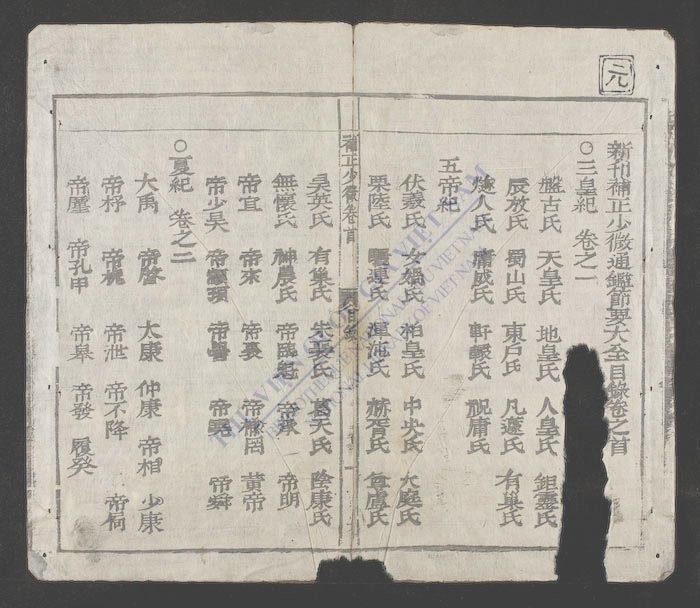 元
新刊補正少微通鑑節要大全目錄卷之首
○三皇紀 卷之一
盤古氏 天皇氏 地皇氏 人皇氏 鉅靈氏
辰放氏 蜀山氏 東戶氏 凡蘧氏 有巢氏
燧人氏 庸成氏 軒轅氏 祝庸氏
五帝紀
伏羲氏 女媧氏 柏皇氏 中央氏 大庭氏
栗陸氏 驪連氏 渾沌氏 赫胥氏 尊盧氏
補正少微卷首 目錄
昊英氏 有巢氏 朱襄氏 葛天氏 陰康氏
無懷氏 神農氏 帝臨魁 帝承 帝明
帝宜 帝來 帝裏 帝榆罔 黃帝
帝少昊 帝顓頊 帝嚳 帝堯 帝舜
○夏紀 卷之二
大禹 帝啓 太康 仲康 帝相 少康
帝杼 帝槐 帝泄 帝不降 帝扃
帝廑 帝孔甲 帝皋 帝發 履癸
THƯ VIỆN QUỐC GIA VIỆT NAM
BIBLIOTHÈQUE NATIONALE DU VIETNAM
NATIONAL LIBRARY OF VIETNAM